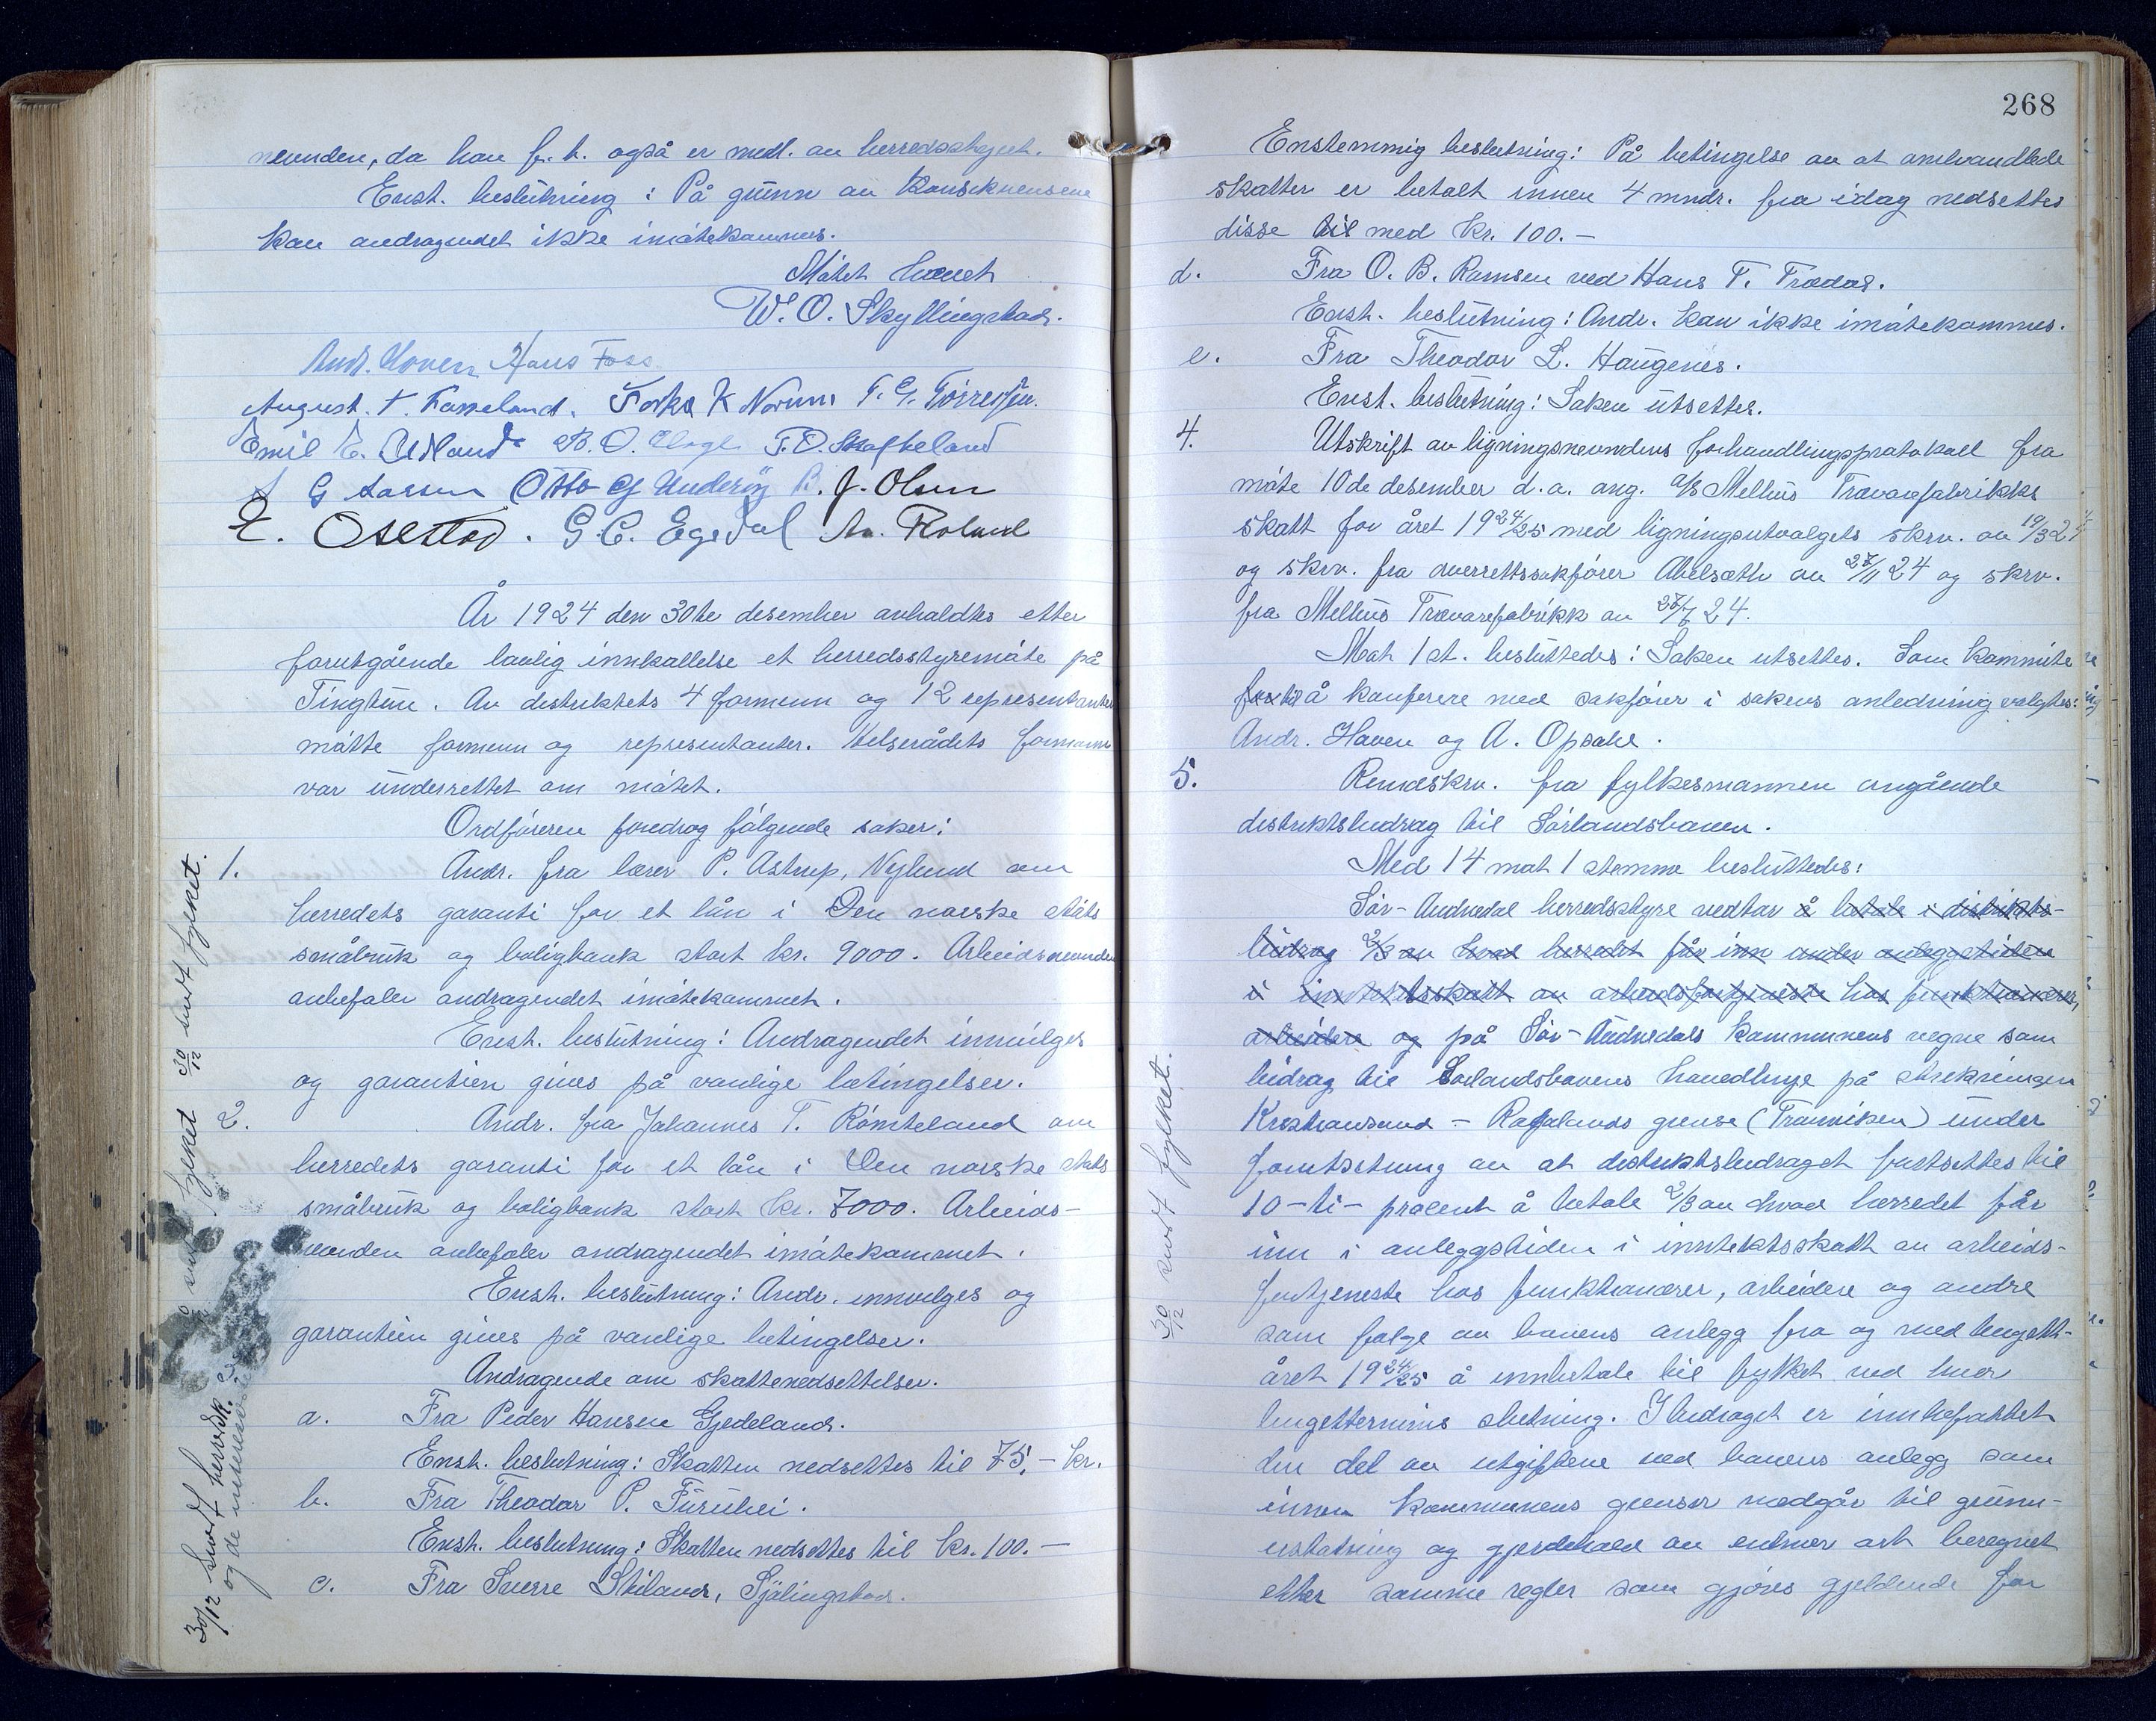 nevnden, da han f. t. også er medl. av herredsstyret.
Enst. beslutning: På grunn av konsekvensene
kan andragendet ikke imøtekommes.
Møtet hævet
W. O. Skyllingstad.
Andr. Hoven Hans Foss.
August. T. Fasseland. Torkel K Norum T. G. Tørressen.
Emil E. Udland B. O. T. O. Skofteland
G Lassen Otto G Underøy B. J. Olsen
E. Osestad. G. C. Egedal An. Roland
År 1924 den 30te desember avholdtes etter
forutgående lovlig innkallelse et herredsstyremøte på
Tingtun. Av distriktets 4 formenn og 12 representanter
møtte formenn og representanter. Helserådets formann
var underrettet om møtet.
Ordføreren foredrog følgende saker:
1. Andr. fra lærer P. Astrup, Vigeland om
herredets garanti for et lån i Den norske stats
småbruk og boligbank stort kr. 9000. Arbeidsnevnden
anbefaler andragendet imøtekommet.
Enst. beslutning: Andragendet innvilges
og garantien gives på vanlige betingelser.
2. Andr. fra Johannes T. Rømteland om
herredets garanti for et lån i Den norske stats
småbruk og boligbank stort kr. 7000. Arbeids-
nevnden anbefaler andragendet imøtekommet.
Enst. beslutning: Andr. innvilges og
garantien gives på vanlige betingelser.
Andragende om skattenedsettelser.
a. Fra Peder Hansen Gjedeland.
Enst. beslutning: Skatten nedsettes til 75,- kr.
b. Fra Theodor P. Furuhei.
Enst. beslutning: Skatten nedsettes til kr. 100.-
c. Fra Sverre Stiland, Sjølingstad.
30/12 sendt fylket.
30/12 sendt fylket
30/12 sendt herredsk.
og de interesserte
268
Enstemmig beslutning: På betingelse av at omhandlede
skatter er betalt innen 4 mndr. fra idag nedsettes
disse til med kr. 100.-
d. Fra O. B. Ramsen ved Hans T. Trædal.
Enst. beslutning: Andr. kan ikke imøtekommes.
e. Fra Theodor L. Haugenes.
Enst. beslutning: Saken utsettes.
4. Utskrift av ligningsnevndens forhandlingsprotokoll fra
møte 10de desember d.a. ang. a/s Melhus Trævarefabrikks
skatt for året 1924/25 med ligningsutvalgets skrv. av 19/3 24
og skrv. fra overrettssakfører Abelsæth av 27/11 24 og skrv.
fra Melhus Trævarefabrikk av 24.
Mot 1 st. besluttedes: Saken utsettes. Som kommite
for til å konferere med sakfører i sakens anledning valgtes:
Andr. Haven og A. Opsahl.
5. Rundskrv. fra fylkesmannen angående
distriktsbidrag til Sørlandsbanen.
Med 14 mot 1 stemme besluttedes:
Sør-Audnedal herredsstyre vedtar å betale i distrikts-
bidrag 2/3 av hvad herredet får inn under anleggstiden
i inntektsskatt av arbeidsfortjeneste hos funktionærer,
arbeidere og på Sør-Audnedals kommunens vegne som
bidrag til Sørlandsbanens hovedlinje på strekningen
Kristiansand - Rogalands grense (Tronviken) under
forutsetning av at distriktsbidraget fastsettes til
10 - ti - procent å betale 2/3 av hvad herredet får
inn i anleggstiden i inntektsskatt av arbeids-
fortjeneste hos funktionærer, arbeidere og andre
som følge av banens anlegg fra og med budgett-
året 1924/25 å innbetale til fylket ved hver
budgettermins slutning. I bidraget er innbefattet
den del av utgiftene ved banens anlegg som
innen kommunens grenser medgår til grunn-
erstatning og gjerdehold av enhver art beregnet
etter samme regler som gjøres gjeldende for
30/12 sendt fylket.